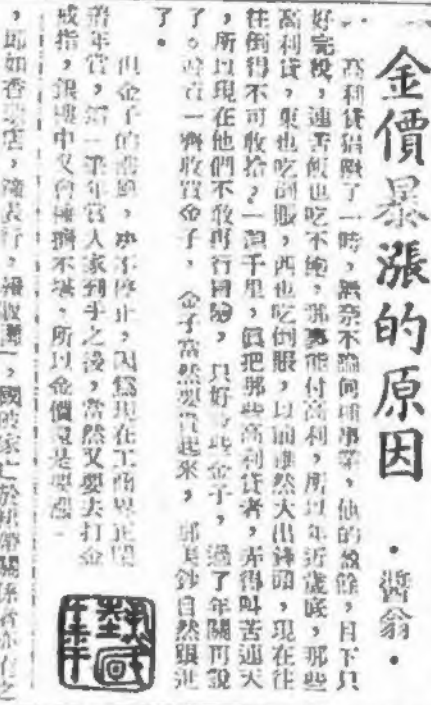 金價暴漲的原因
·哲翁·
高利貸猖獗了一時，無奈不論何種事業，他的盈餘，目下只
好完稅，連苦飯也吃不飽，那裏能付高利，所以年近歲底，那些
高利貸，東也吃倒賬，西也吃倒賬，以前雖然大出鋒頭，現在往
往倒得不可收拾，一瀉千里，眞把那些高利貸者，弄得叫苦連天
，所以現在他們不敢再行冒險，只好 些金子，過了年關再說
了。 一窩收買金子，金子當然要貴起來，那 鈔自然跟進
了。
但金子的 ，決不停止，因爲現在工商界正鬧
年賞，第一筆年賞人家到手之後，當然又要去打金
戒指，銀樓中又會擁擠不堪，所以金價還是要漲
，即如香 店，鐘表行， ，國破家亡 關係者亦有之